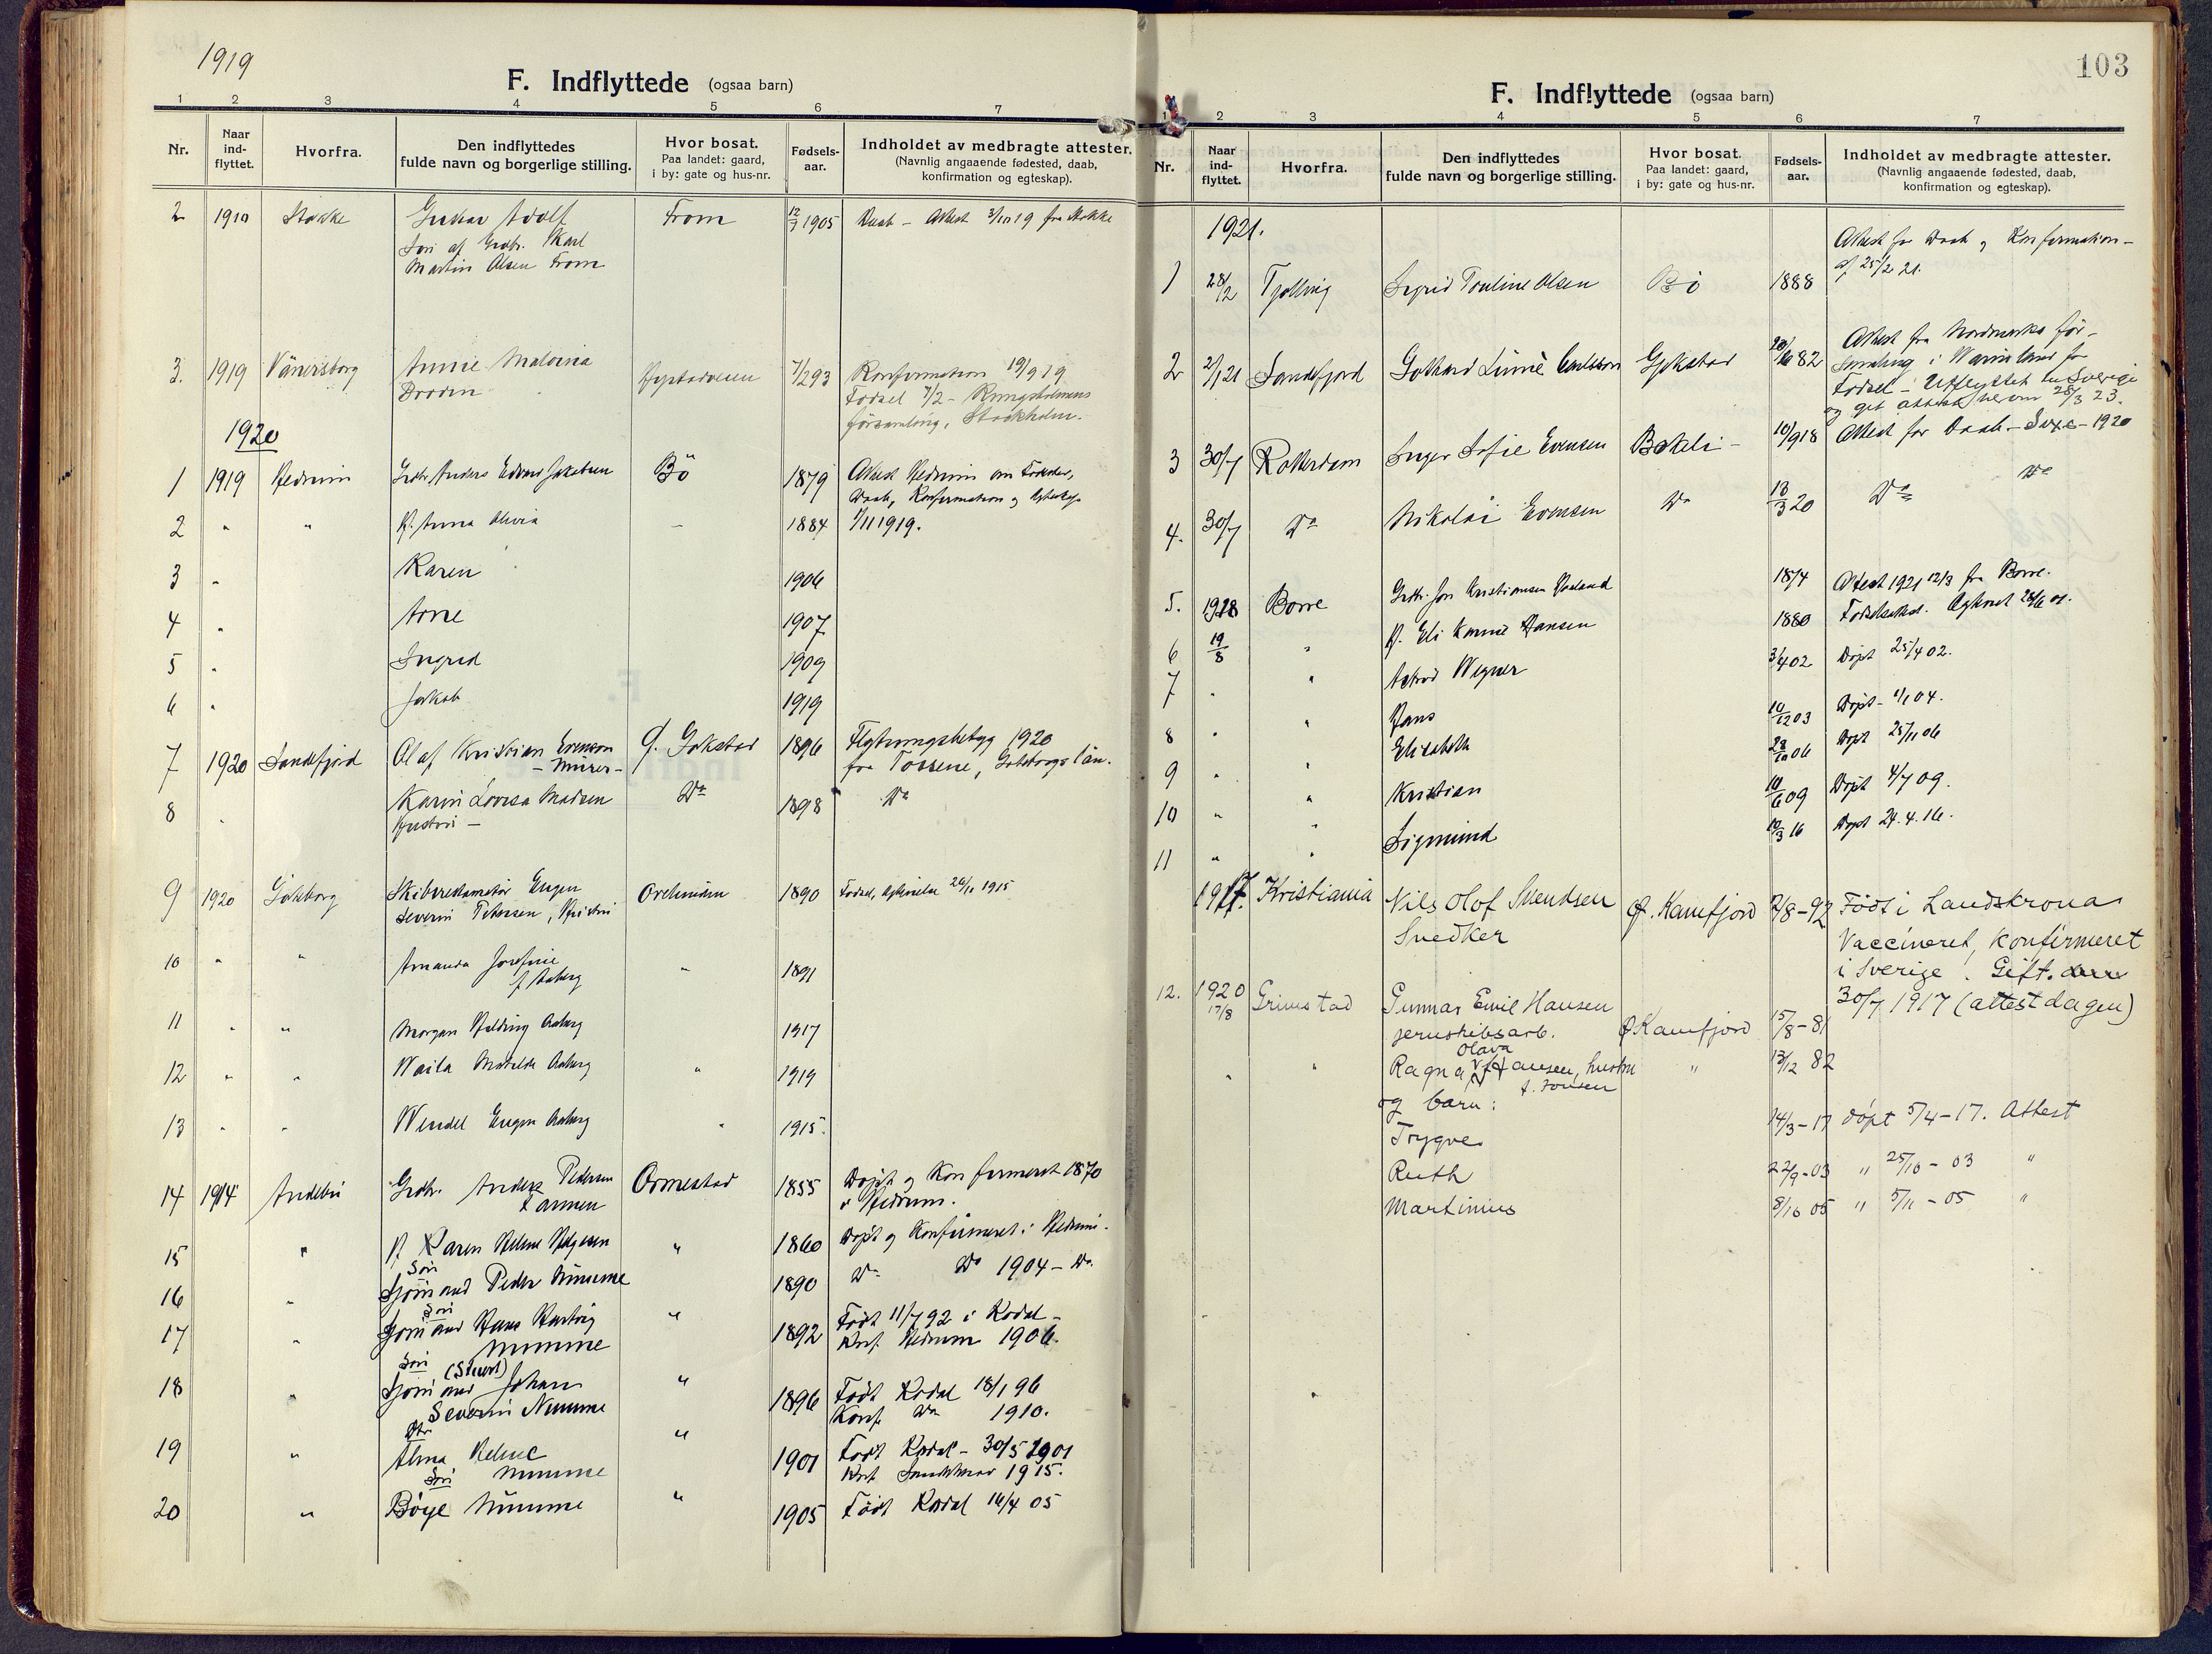 1919
F. Indflyttede (ogsaa barn)
1 2 3 4 5 6 7
Nr. Naar ind-flyttet. Hvorfra. Den indflyttedes fulde navn og borgerlige stilling. Hvor bosat. Paa landet: gaard, i by: gate og hus-nr. Fødsels-aar. Indholdet av medbragte attester. (Navnlig angaaende fødested, daab, konfirmation og egteskap).
2 1910 Stokke Gunnar Adolf From 12/7 1905 Daab - Attest 3/10 19 fra Stokke
Søn af Grdbr. Karl
Martin Olsen From
3. 1919 Vänersborg Annie Malvina 7/2 93 Konfirmation 19/9 19
Brodin Fødsel 7/2 - Kungsholmens
församling, Stockholm.
1920
1 1919 Hedrum Grdbr. Anders Edvard Jakobsen Bö 1879 Attest Hedrum om Fødsler,
Daab, Konfirmation og
2 " " H. Anna Olivia - 1884 1/11 1919.
3 " Karen 1906
4 " Arne 1907
5 " Ingrid 1909
6 " Jakob 1919
7 1920 Sandefjord Olaf Kristian Evenson Ø. Gokstad 1896 Flytningsbetyg 1920
- Murer - fra Tossene, Göteborgs län.
8 " Karin Lovisa Madsen Do 1898 Do
Hustru -
9 1920 Göteborg Eugen 1890 Fødsel, 26/11 1915
Severin Petersen,
10 " " Amanda Josefine " 1891
f. Aaberg
11 " " Morgan Aaberg 1917
12 " " Matilde Aaberg " 1919
13 " " Wendel Eugen Aaberg " 1915.
14 1914 Andebu Grdbr. Anders Pedersen Ormestad 1855 Døpt og Konfirmeret 1870
i Hedrum.
15 " H Karen Helene Helgesen " 1860 Døpt og Konfirmeret i Hedrum.
Søn
16 " Sjømand Peder Nimme 1890 Do Do 1904 - Do
Søn
17 " Sjømand Hans Hartvig " 1892 Født 11/7 92 i Kodal -
Nimme Konf. Hedrum 1906.
Søn (Stuert)
18 " Sjømand Johan " 1896 Født Kodal 18/1 96
Severin Nimme Konf. Do 1910.
Dtr
19 " Alma Helene " 1901 Født Kodal - 30/5 1901
Nimme Konf. Sandeherred 1915.
Søn
20 " Börge Nimme " 1905 Født Kodal 16/4 05
103
F. Indflyttede (ogsaa barn)
1 2 3 4 5 6 7
Nr. Naar ind-flyttet. Hvorfra. Den indflyttedes fulde navn og borgerlige stilling. Hvor bosat. Paa landet: gaard, i by: gate og hus-nr. Fødsels-aar. Indholdet av medbragte attester. (Navnlig angaaende fødested, daab, konfirmation og egteskap).
1921.
Attest for Daab og Konfirmation -
af 25/2 21.
1 28/2 Tjølling Sigrid Pauline Olsen Bö 1888
2 2/1 21 Sandefjord Gothard Linné Carlsson Gokstad 82 Attest fra Nordmarks för-
samling i Warmland for
Fødsel - Utflyttet til Sverige
og git attest herom 28/3 23.
3 30/7 Rotterdam Inger Sofie Evensen 10/9 18 Attest for Daab - - 1920
4. 30/7 Do Nikolai Evensen Do 13/3 20 Do Do
5. 1918 Borre Grdbr. Jon Kristiansen 1874 Attest 1921 12/3 fra Borre.
6 19/8 " H. Eli Karine Hansen 1880 Fødselsattest. 28/6 01.
7 " " Astrid Wegner 3/4 02 Døpt 25/4 02.
8 " " Hans 10/12 03 Døpt - 1/1 04.
9 " Elisabeth 28/10 06 Døpt 25/11 06
10 " " Kristian 10/6 09 Døpt 4/7 09.
11 " " Sigmund 10/3 16 Døpt 24.4.16.
1917. Kristiania Nils Olof Svendsen Ø. Kamfjord 2/8-92 Född i Landskrona
Snedker Vaccineret, konfirmeret
i Sverige. Gift.
30/7 1917 (attest dagen)
12. 1920 Grimstad Gunnar Emil Hansen
17/8 jernskibsarb. Ø Kamfjord 15/8-81
Olava
" " Ragna Hansen, hustru " 13/12 82
f. Jonsen
og barn:
Trygve 14/3-17 døpt 5/4-17. Attest
Ruth 22/9-03 " 25/10-03 "
Martinius 8/10 05 " 5/11-05 "